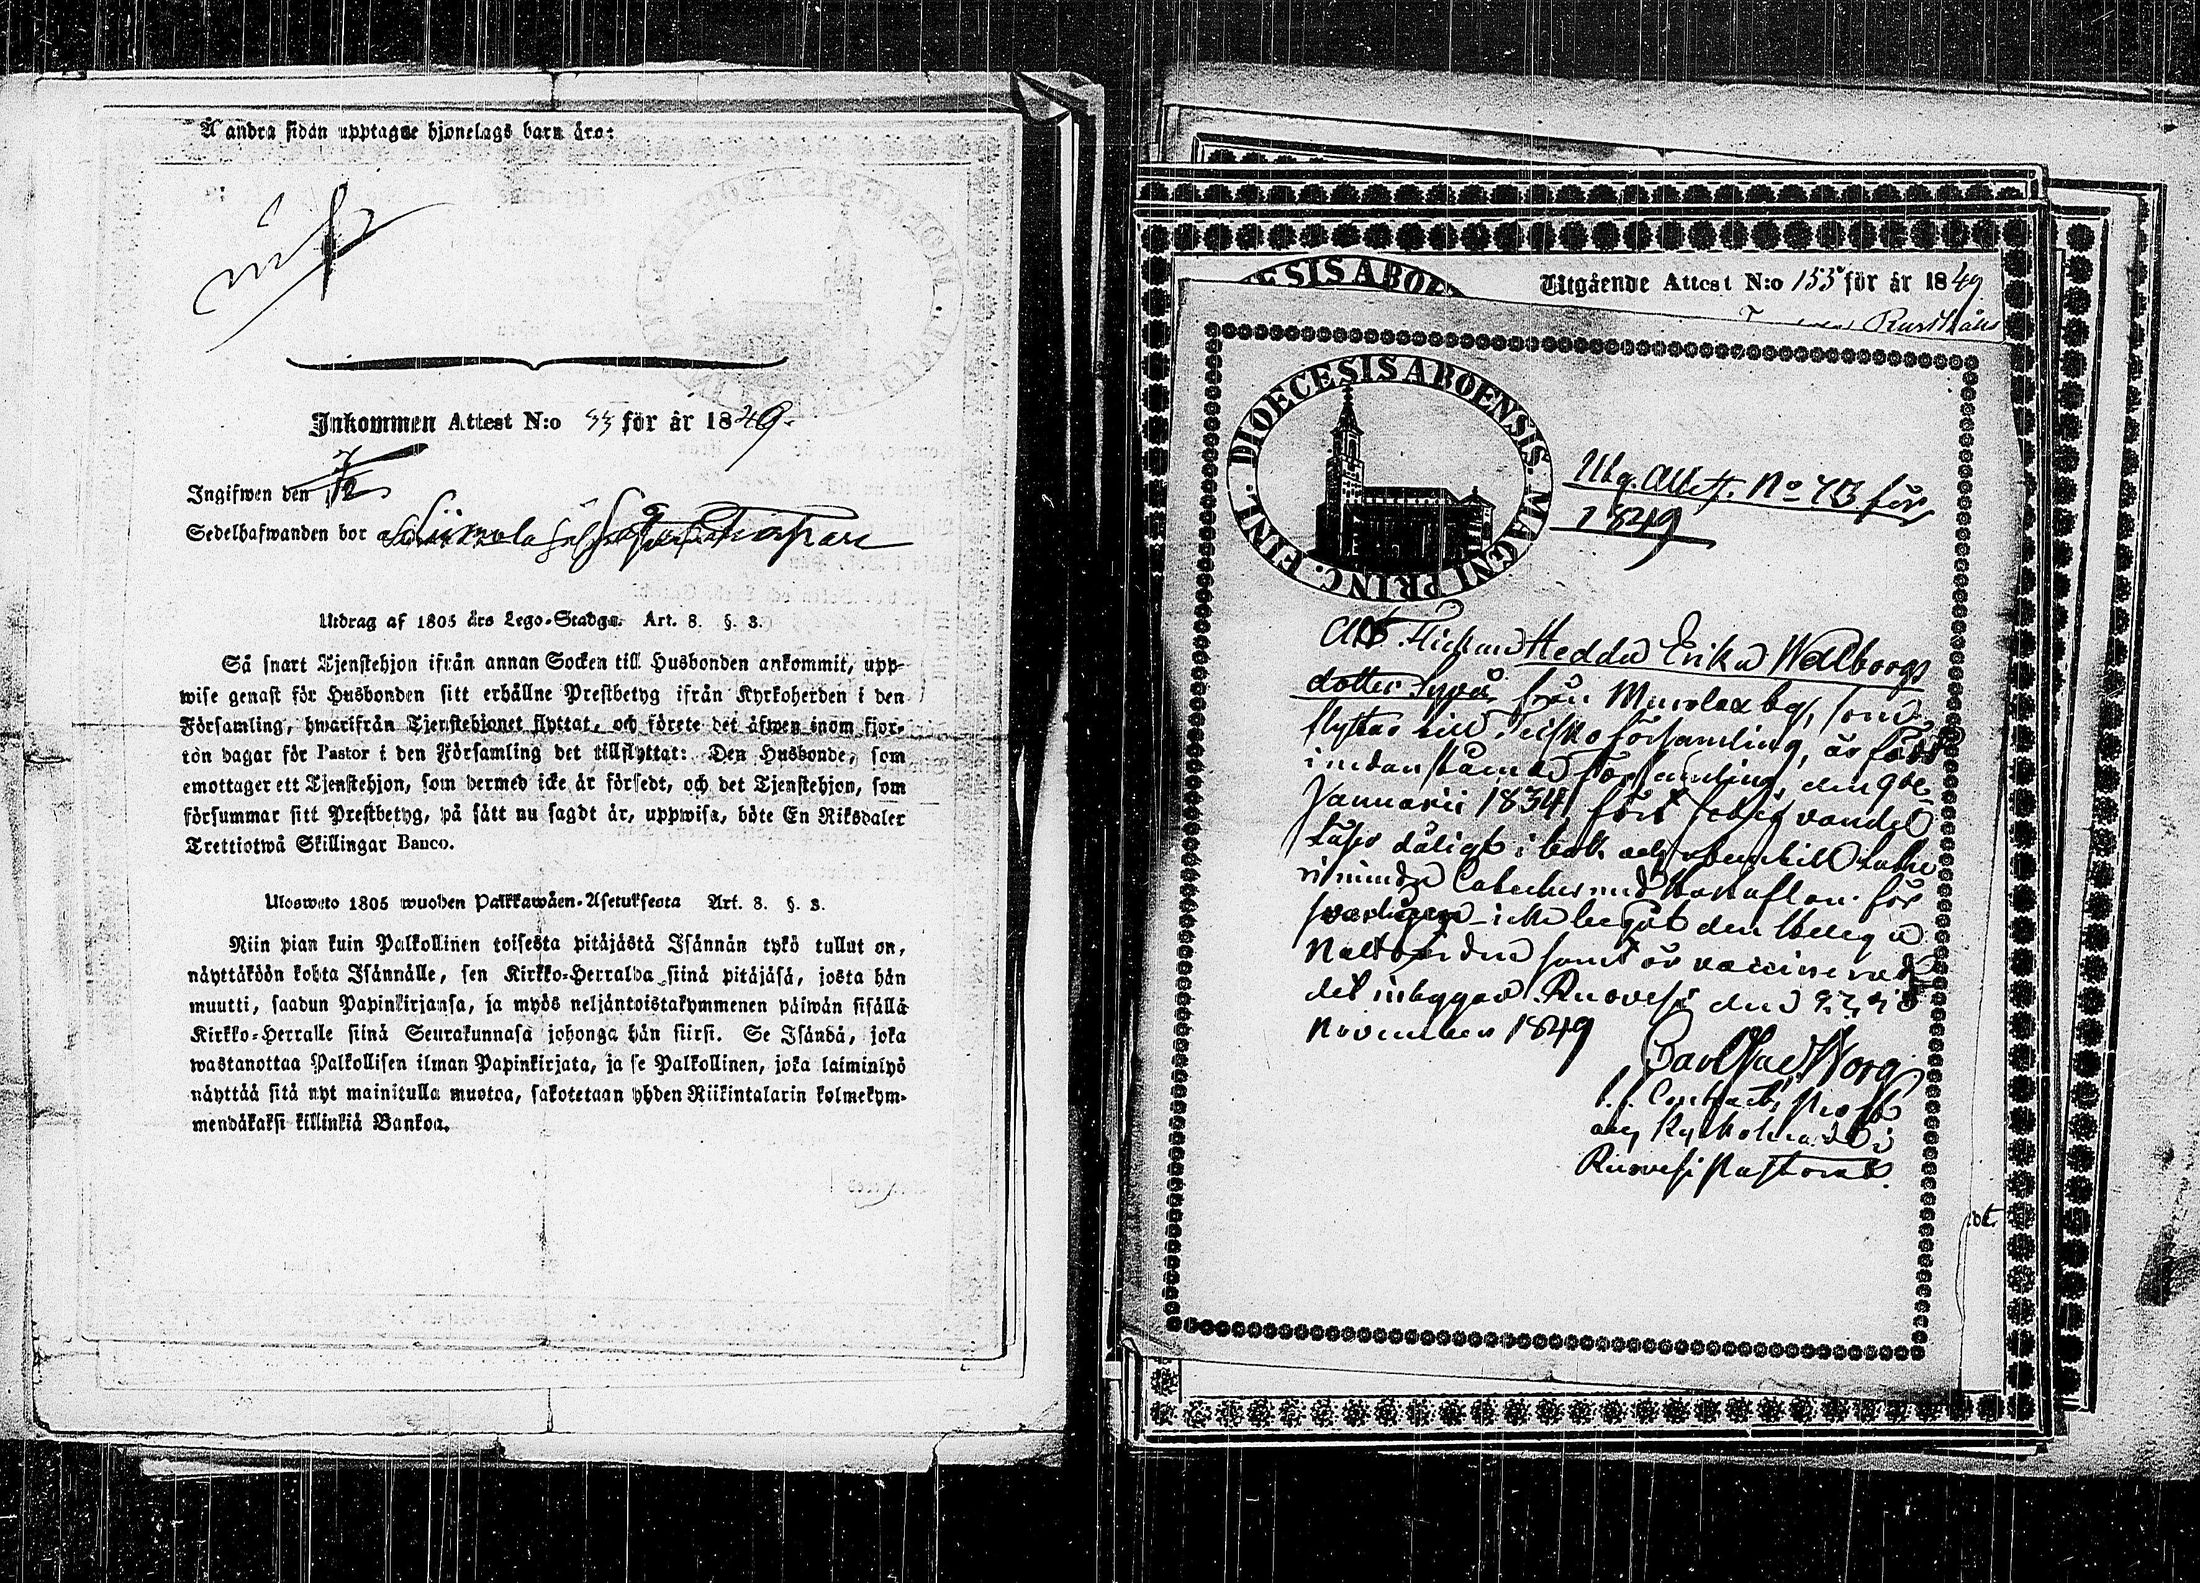 Å andra sidan upptagne hjonelags barn äro:
Inkommen Attest N:o 33 för år 1849.
Ingifwen den
Sedelhafwanden bor
Utdrag af 1805 års Lego-Stadga. Art. 8. §. 3.
Så snart Tjenstehjon ifrån annan Socken till Husbonden ankommit, upp-
wise genast för Husbonden sitt erhållne Prestbetyg ifrån Kyrkoherden i den
Församling, hwarifrån Tjenstehjonet flyttat, och förete det äfwen inom fjor-
ton dagar för Pastor i den Församling det tillflyttat: Den Husbonde, som
emottager ett Tjenstehjon, som dermed icke är försedt, och det Tjenstehjon, som
försummar sitt Prestbetyg, på sätt nu sagdt är, uppwisa, böte En Riksdaler
Trettiotwå Skillingar Banco.
Ulosweto 1805 wuoden Palkkawäen-Asetuksesta Art. 8. §. 3.
Niin pian kuin Palkollinen toisesta pitäjästä Isännän tykö tullut on,
näyttäköön kohta Isännälle, sen Kirkko-Herralda siinä pitäjäsä, josta hän
muutti, saadun Papinkirjansa, ja myös neljäntoistakymmenen päiwän sisällä
Kirkko-Herralle siinä Seurakunnasa johonga hän siirsi. Se Isändä, joka
wastanottaa Palkollisen ilman Papinkirjata, ja se Palkollinen, joka laiminlyö
näyttää sitä nyt mainitulla muotoa, sakotetaan yhden Riikintalarin kolmekym-
mendäkaksi killinkiä Bankoa.
SIS ABOE
Utgående Attest N:o 155 för år 1849
Rusthåls
DIOECESIS ABOENSIS. MAGNI PRINC. FINL.
Utg. Attest. No 73 för
1849
Att Flickan Hedda Erika Wallborgs
dotter från Murolax by, som
flyttar till Teisko församling, är född
i nedanstående församling den 9de
Januarii 1834, fört vandel
Läser dåligt i bok och utantill Luthe
ri mindre Cateches med
icke begått den Heliga
Nattvarden samt är vaccinerad
det intygar. Ruovesi den
November 1849
Borg
Contracts Prost
och Kyrkoherde i
Ruovesi Pastorat.